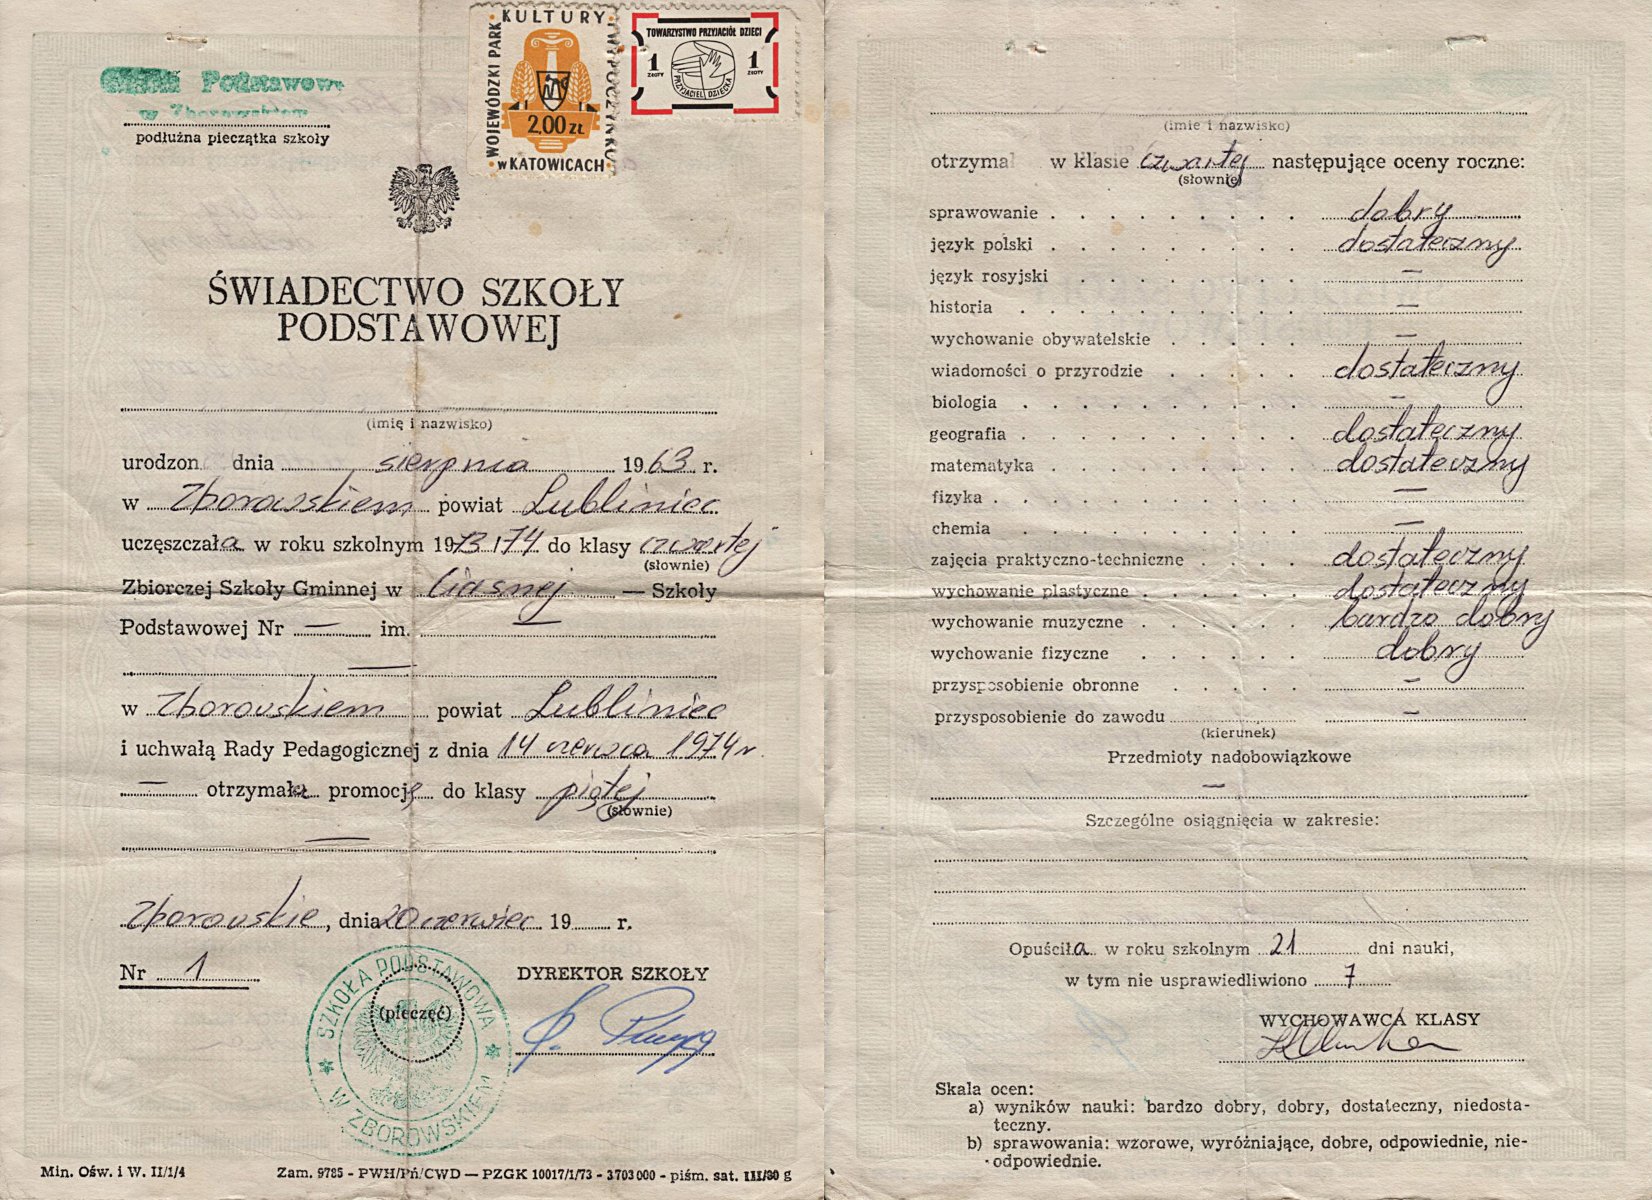 Podstawowa
w Zborowskiem
podłużna pieczątka szkoły
WOJEWÓDZKI PARK KULTURY I WYPOCZYNKU w KATOWICACH
2.00 ZŁ
TOWARZYSTWO PRZYJACIÓŁ DZIECI
1 ZŁOTY 1 ZŁOTY
PRZYJACIEL DZIECKA
ŚWIADECTWO SZKOŁY
PODSTAWOWEJ
(imię i nazwisko)
urodzon dnia sierpnia 1963 r.
w Zborowskiem powiat Lubliniec
uczęszczała w roku szkolnym 1973/74 do klasy czwartej
(słownie)
Zbiorczej Szkoły Gminnej w Ciasnej — Szkoły
Podstawowej Nr — im. —
—
w Zborowskiem powiat Lubliniec
i uchwałą Rady Pedagogicznej z dnia 14 czerwca 1974 r.
— otrzymała promocję do klasy piątej
(słownie)
—
Zborowskie, dnia 20 czerwiec 19 r.
Nr 1
DYREKTOR SZKOŁY
(pieczęć)
SZKOŁA PODSTAWOWA W ZBOROWSKIEM
Min. Ośw. i W. II/1/4
Zam. 9785 - PWH/Pń/CWD — PZGK 10017/1/73 - 3703000 - piśm. sat. III/80 g
(imię i nazwisko)
otrzymał w klasie czwartej następujące oceny roczne:
(słownie)
sprawowanie dobry
język polski dostateczny
język rosyjski —
historia —
wychowanie obywatelskie —
wiadomości o przyrodzie dostateczny
biologia —
geografia dostateczny
matematyka dostateczny
fizyka —
chemia —
zajęcia praktyczno-techniczne dostateczny
wychowanie plastyczne dostateczny
wychowanie muzyczne bardzo dobry
wychowanie fizyczne dobry
przysposobienie obronne —
przysposobienie do zawodu —
(kierunek)
Przedmioty nadobowiązkowe
—
Szczególne osiągnięcia w zakresie:
Opuściła w roku szkolnym 21 dni nauki,
w tym nie usprawiedliwiono 7
WYCHOWAWCA KLASY
Skala ocen:
a) wyników nauki: bardzo dobry, dobry, dostateczny, niedosta-
teczny.
b) sprawowania: wzorowe, wyróżniające, dobre, odpowiednie, nie-
odpowiednie.